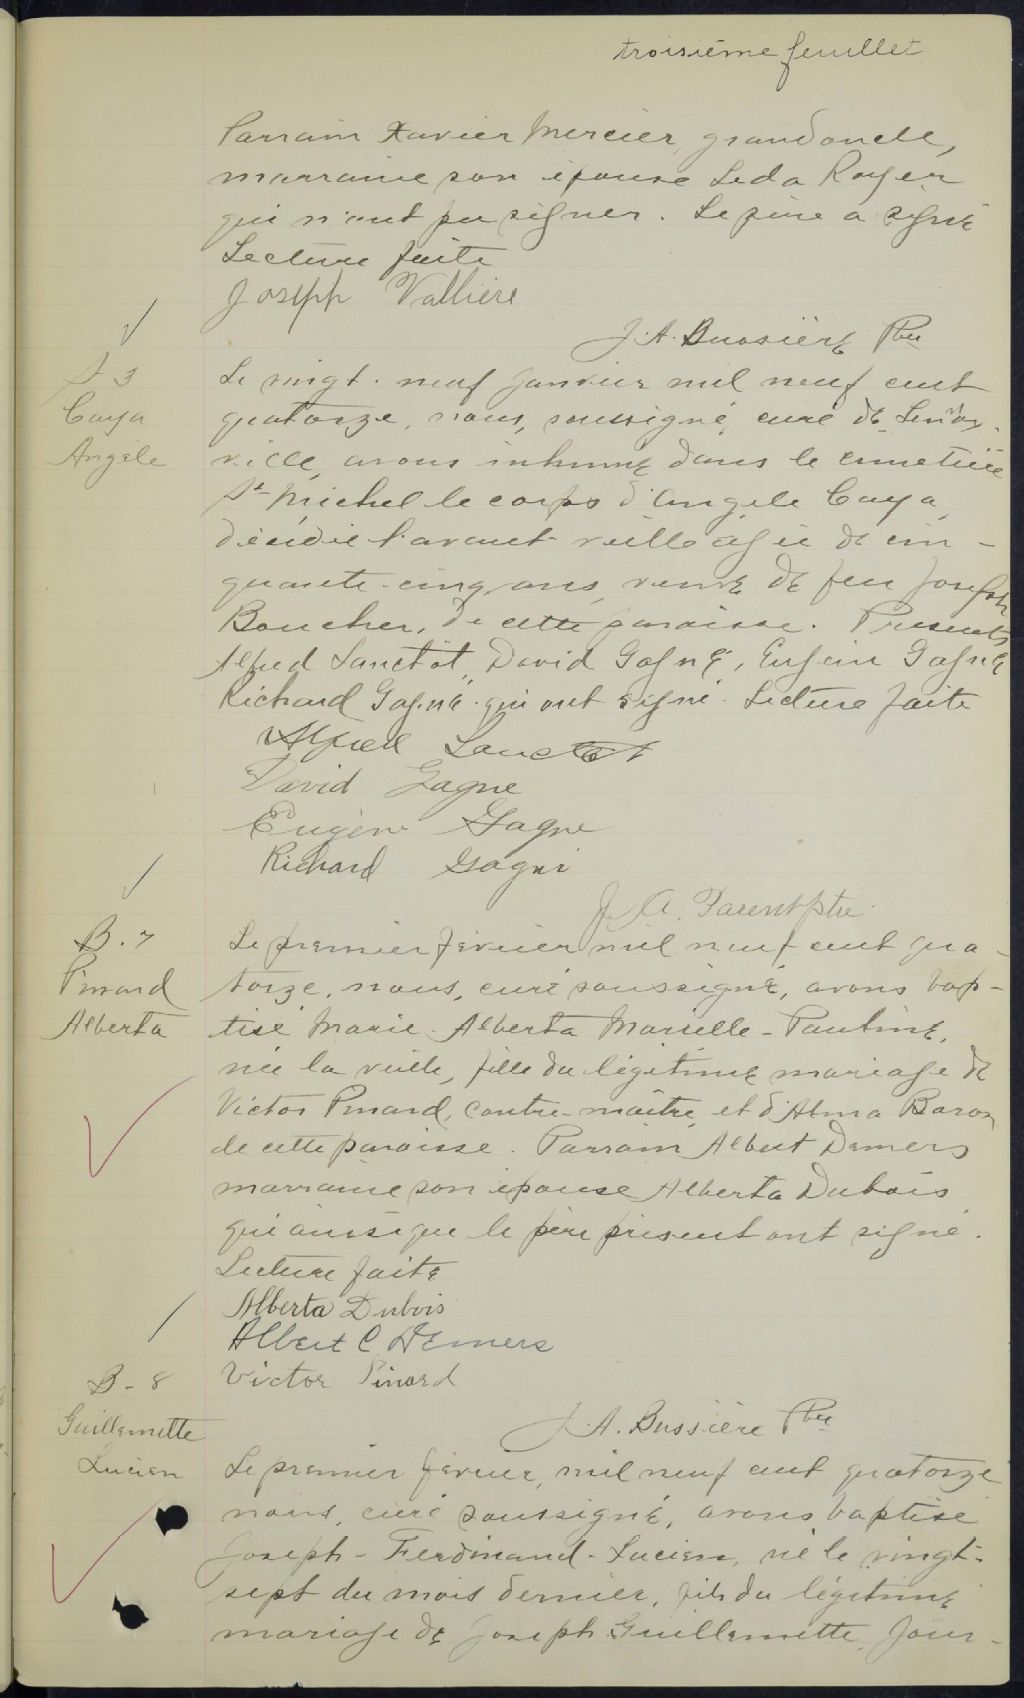 troisième feuillet
Parrain Xavier Mercier, grand oncle,
marraine son épouse Leda Royer
qui n'ont pu signer. Le père a signé
Lecture faite
Joseph Vallière
J. A. Bussière Ptre
S 3
Caya
Angèle
Le vingt-neuf janvier mil neuf cent
quatorze, nous, soussigné, curé de Lennox-
ville, avons inhumé dans le cimetière
St-Michel le corps d'Angèle Caya,
décédée l'avant-veille âgée de cin-
quante-cinq ans, veuve de feu Joseph
Boucher, de cette paroisse. Présents
Alfred Sanctôt, David Gagné, Eugène Gagné
Richard Gagné qui ont signé. Lecture faite
Alfred Lanctot
David Gagne
Eugène Gagne
Richard Gagné
J. A. Parent ptre
B. 7
Pinard
Alberta
Le premier février mil neuf cent qua-
torze, nous, curé soussigné, avons bap-
tisé Marie-Alberta Marielle-Pauline,
née la veille, fille du légitime mariage de
Victor Pinard, contre-maître, et d'Alma Baron
de cette paroisse. Parrain Albert Demers
marraine son épouse Alberta Dubois
qui ainsi que le père présent ont signé.
Lecture faite
Alberta Dubois
Albert C. Demers
Victor Pinard
J. A. Bussière Ptre
B-8
Guillemette
Lucien
Le premier février, mil neuf cent quatorze
nous, curé soussigné, avons baptisé
Joseph-Ferdinand-Lucien, né le vingt-
sept du mois dernier, fils du légitime
mariage de Joseph Guillemette, jour-